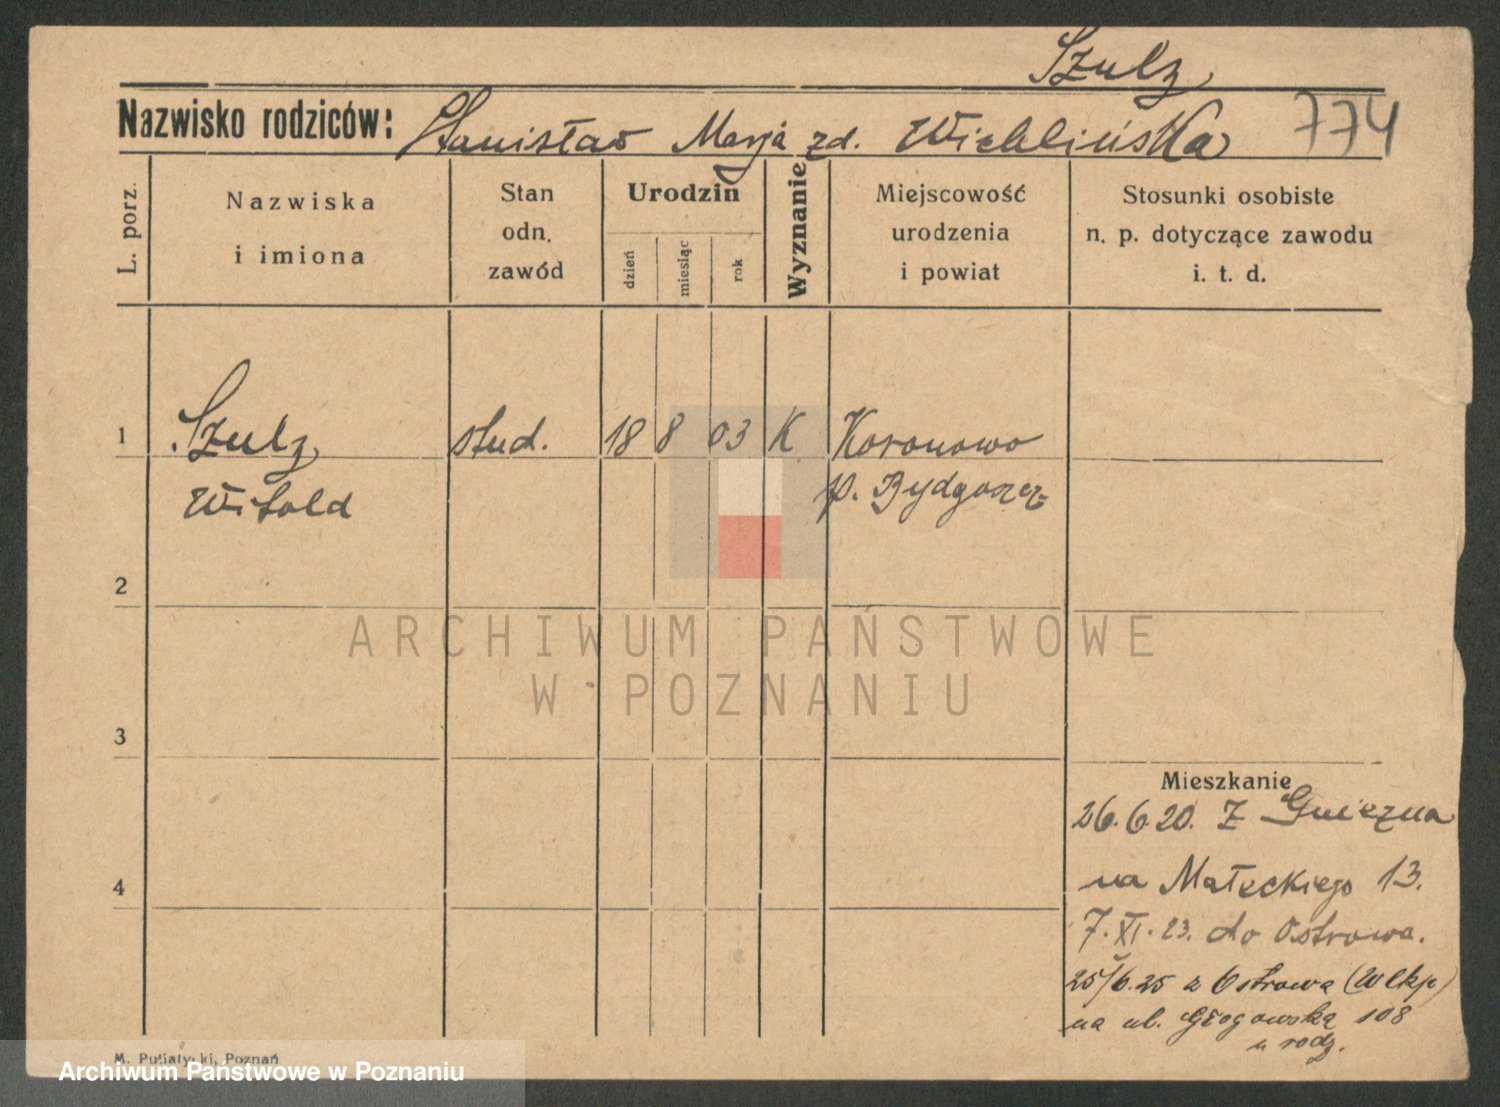 Szulz
Nazwisko rodziców: Stanisław Marja zd. Wichlińska 774
L. porz.
Nazwiska
i imiona
Stan
odn.
zawód
Urodzin
dzień
miesiąc
rok
Wyznanie
Miejscowość
urodzenia
i powiat
Stosunki osobiste
n. p. dotyczące zawodu
i. t. d.
1 Szulz stud. 18 8 03 K Koronowo
Witold p. Bydgoszcz
2
ARCHIWUM PAŃSTWOWE
W POZNANIU
3
Mieszkanie
26.6.20. Z Gniezna
4
na Małeckiego 13.
7.XI.23. do Ostrowa.
25/6.25 z Ostrowa (Wlkp)
na ul. Głogowską 108
u rodz.
M. Putiatycki, Poznań
Archiwum Państwowe w Poznaniu